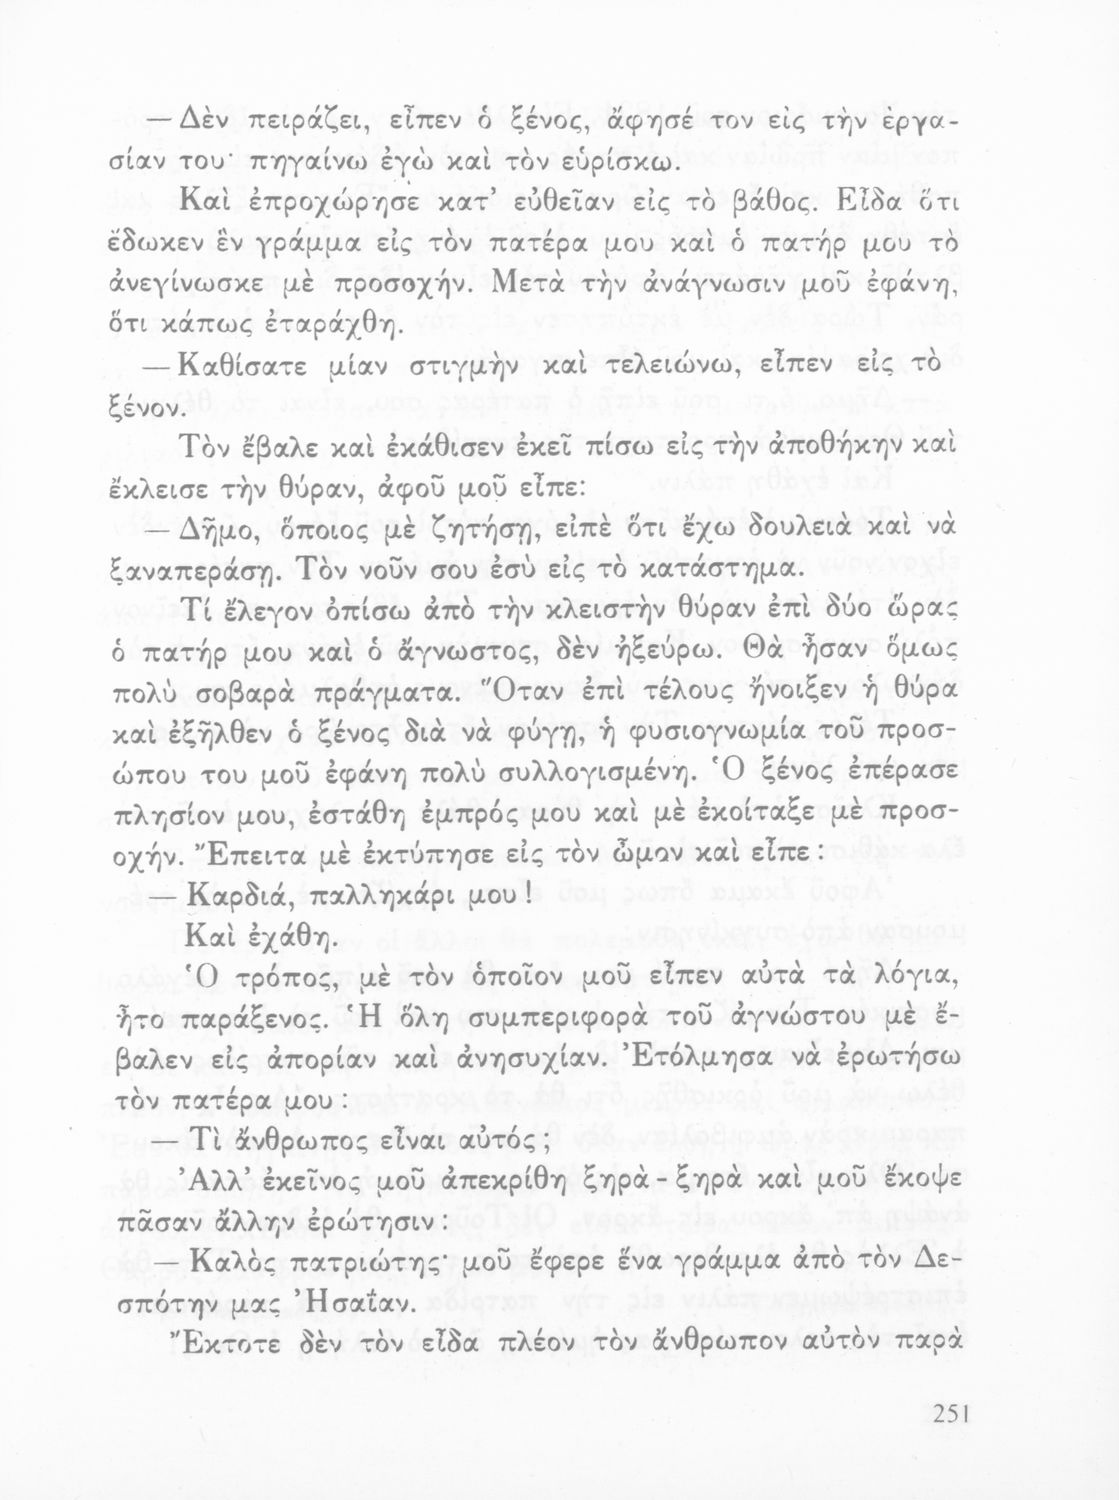 — Δὲν πειράζει, εἶπεν ὁ ξένος, ἄφησέ τον εἰς τὴν ἐργα-
σίαν του· πηγαίνω ἐγὼ καὶ τὸν εὑρίσκω.
Καὶ ἐπροχώρησε κατ’ εὐθεῖαν εἰς τὸ βάθος. Εἶδα ὅτι
ἔδωκεν ἓν γράμμα εἰς τὸν πατέρα μου καὶ ὁ πατήρ μου τὸ
ἀνεγίνωσκε μὲ προσοχήν. Μετὰ τὴν ἀνάγνωσιν μοῦ ἐφάνη,
ὅτι κάπως ἐταράχθη.
— Καθίσατε μίαν στιγμὴν καὶ τελειώνω, εἶπεν εἰς τὸ
ξένον.
Τὸν ἔβαλε καὶ ἐκάθισεν ἐκεῖ πίσω εἰς τὴν ἀποθήκην καὶ
ἔκλεισε τὴν θύραν, ἀφοῦ μοῦ εἶπε:
— Δῆμο, ὅποιος μὲ ζητήσῃ, εἰπὲ ὅτι ἔχω δουλειὰ καὶ νὰ
ξαναπεράσῃ. Τὸν νοῦν σου ἐσὺ εἰς τὸ κατάστημα.
Τί ἔλεγον ὀπίσω ἀπὸ τὴν κλειστὴν θύραν ἐπὶ δύο ὥρας
ὁ πατήρ μου καὶ ὁ ἄγνωστος, δὲν ἠξεύρω. Θὰ ἦσαν ὅμως
πολὺ σοβαρὰ πράγματα. Ὅταν ἐπὶ τέλους ἤνοιξεν ἡ θύρα
καὶ ἐξῆλθεν ὁ ξένος διὰ νὰ φύγῃ, ἡ φυσιογνωμία τοῦ προσ-
ώπου του μοῦ ἐφάνη πολὺ συλλογισμένη. Ὁ ξένος ἐπέρασε
πλησίον μου, ἐστάθη ἐμπρός μου καὶ μὲ ἐκοίταξε μὲ προσ-
οχήν. Ἔπειτα μὲ ἐκτύπησε εἰς τὸν ὦμον καὶ εἶπε :
— Καρδιά, παλληκάρι μου !
Καὶ ἐχάθη.
Ὁ τρόπος, μὲ τὸν ὁποῖον μοῦ εἶπεν αὐτὰ τὰ λόγια,
ἦτο παράξενος. Ἡ ὅλη συμπεριφορὰ τοῦ ἀγνώστου μὲ ἔ-
βαλεν εἰς ἀπορίαν καὶ ἀνησυχίαν. Ἐτόλμησα νὰ ἐρωτήσω
τὸν πατέρα μου :
— Τὶ ἄνθρωπος εἶναι αὐτός ;
Ἀλλ’ ἐκεῖνος μοῦ ἀπεκρίθη ξηρὰ - ξηρὰ καὶ μοῦ ἔκοψε
πᾶσαν ἄλλην ἐρώτησιν :
— Καλὸς πατριώτης· μοῦ ἔφερε ἕνα γράμμα ἀπὸ τὸν Δε-
σπότην μας Ἠσαΐαν.
Ἔκτοτε δὲν τὸν εἶδα πλέον τὸν ἄνθρωπον αὐτὸν παρὰ
251